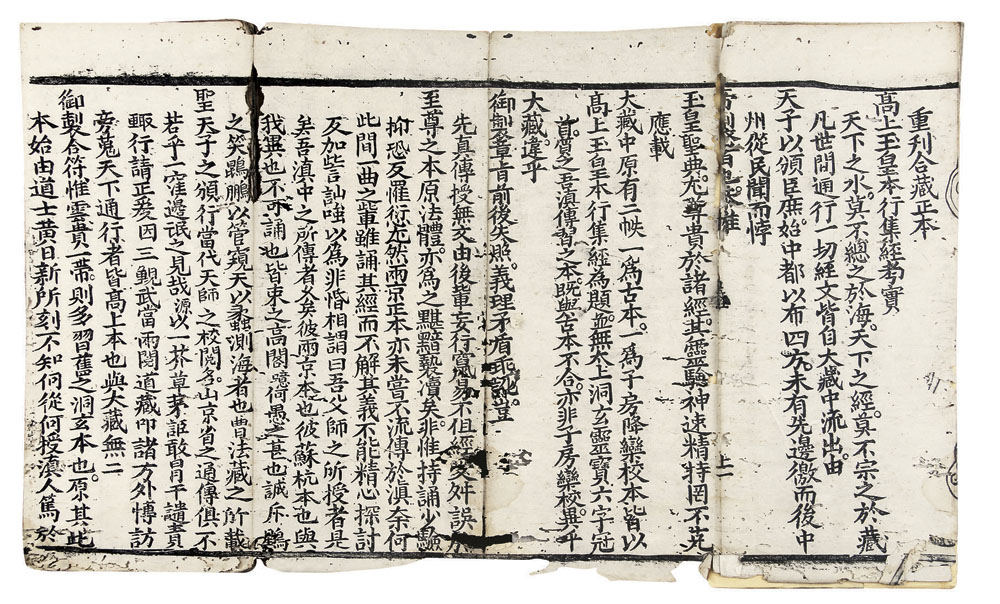 重刋合藏正本
高上玉皇本行集經考實
天下之水莫不總之於海天下之經莫不宗之於藏
凡世間通行一切經文皆自大藏中流出由
天子以頒臣庶始中都以布四方未有先邊徼而後中
州從民間而悖
玉皇聖典尤尊貴於諸經其靈驗神速精持罔不
應載
大藏中原有二帙一為古本一為子房降欒校本皆以
高上玉皇本行集經為題並無太上洞玄靈寶六字冠
首質之吾滇傳習之本既與古本不合亦非子房欒校異乎
大藏違乎
御製章首前後失照義理矛盾乖訛豈
先真傳授無文由後輩妄行竄易不但經文舛誤於
至尊之本原法體亦為之黜黯褻瀆矣非惟持誦少驗
抑恐反罹衍尤然兩京正本亦未嘗不流傳於滇奈何
此間一曲之輩雖誦其經而不解其義不能精心探討
反加呰言訕嗤以為非惛相謂曰吾父師之所授者是
矣吾滇中之所傳者久矣彼兩京本也彼蘇杭本也與
我異也不可誦也皆束之高閣噫何愚之甚也誠斥鷃
之笑鵾鵬以管窺天以蠡測海者也曹法藏之所載
聖天子之頒行當代天師之校閱名山京省之通傳俱不
若乎一窪邊氓之見哉源以一芥草茅詎敢冐干譴責
輙行請正爰因三覲武當兩閱道藏叩諸方外慱訪
旁蒐天下通行者皆高上本也與大藏無二
御製合符惟雲貴一帶則多習舊之洞玄本也原其此
本始由道士黄日新所刻不知何從何授滇人篤於
上二